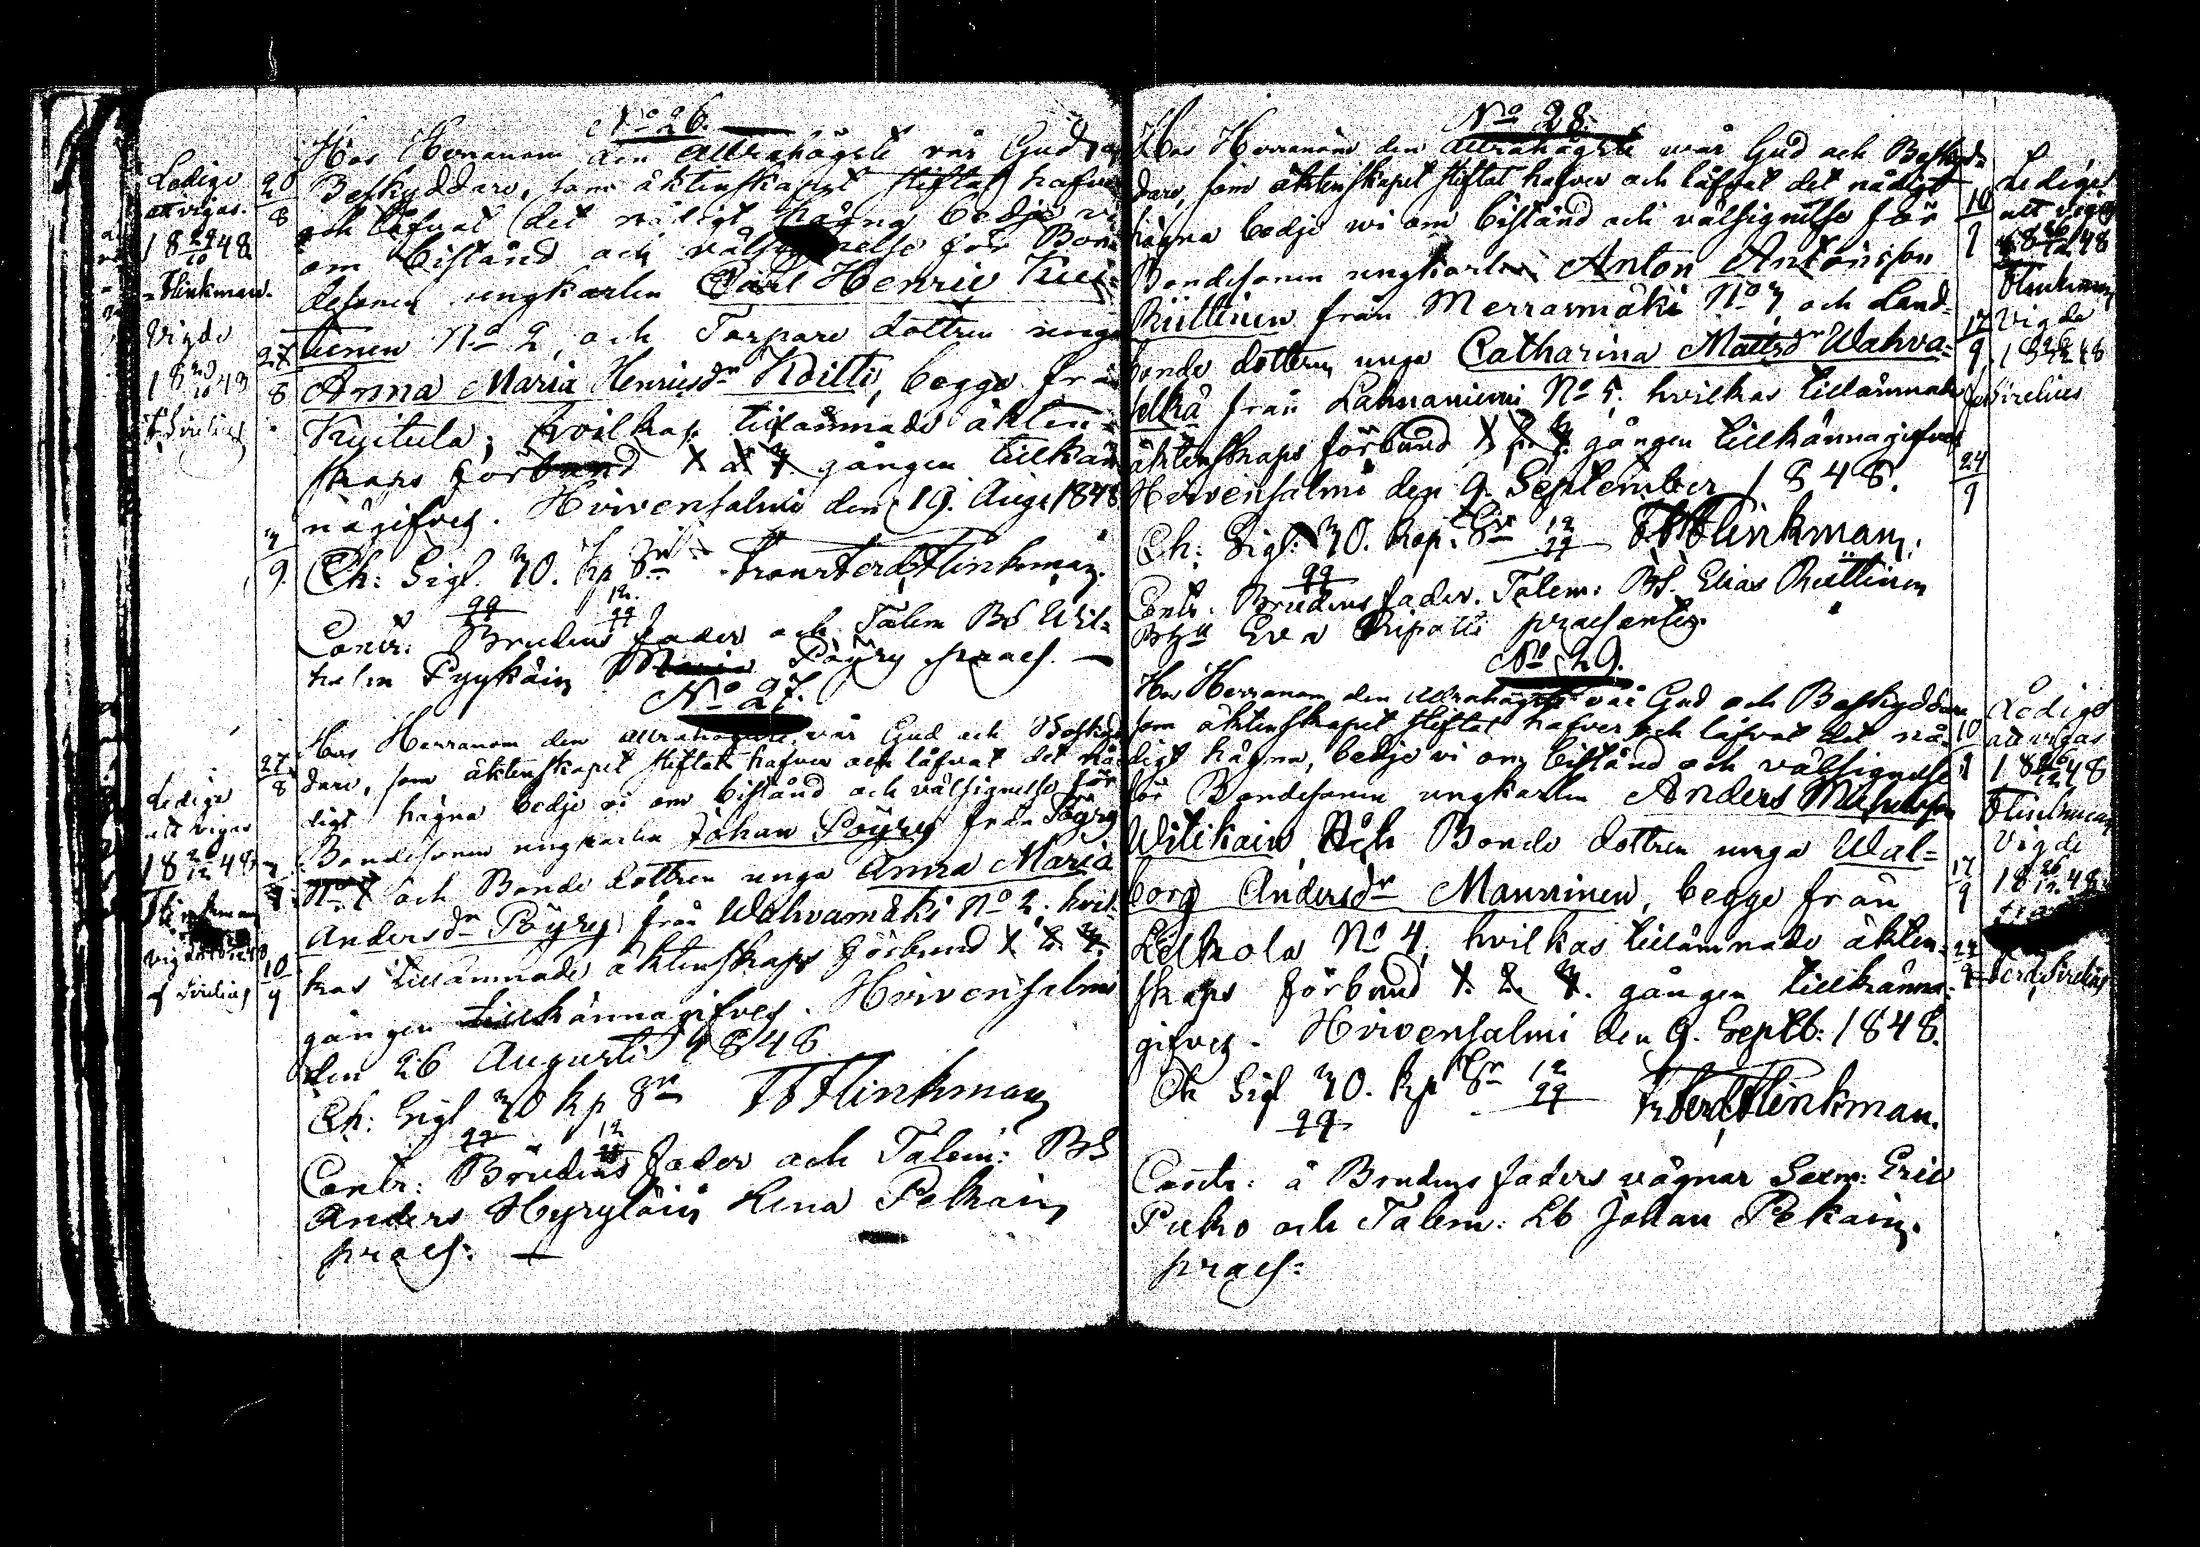 No 26.
Hos Herranom den Allrahögste vår Gud och
Beskyddare, som äktenskapet stiftat hafver
och låfvat det nådigt hägna bedje vi
om bistånd och välsignelse för Bon-
desonen ungkarlen Carl Henric Kui-
tunen No 2, och Torpare dottren unga
Anna Maria Henricsdr Koitti, begge från
Kuitula, hvilkas tillämnade äkten-
skaps förbund 1 2 3 gången tillkän-
nagifves. Hirvensalmi den 19. Aug. 1848
Ch: Sigl. 30. kp Sr Frans Ferd Flinkman.
Contr: Brudens fader och Talem BS Wil-
helm Pyykäin Pöyry praes.
Ledige
att vigas
18 29/10 48
Flinkman.
Vigde
18 29/10 48
F. Sirelius
20/8
27/8
3/9
No 27.
Hos Herranom den Allrahögste, vår Gud och Beskyd-
dare, som äktenskapet stiftat hafver och låfvat det nå-
digt hägna bedje vi om bistånd och välsignelse för
Bondesonen ungkarlen Johan Pöyry från Pöyry
No 1 och Bonde dottren unga Anna Maria
Andersdr Pöyry från Wahvamäki No 2, hvil-
kas tillämnade äktenskaps förbund 1 2 3
gången tillkännagifves. Hirvensalmi
den 26 Augusti 1848
Ch: Sigl 30 kp Sr FFFlinkman
Contr: Brudens fader och Talem: BS
Anders Hyryläin Lena Pelkäin
praes:
Ledige
att vigas
18 48
Flinkman
vigde
F Sirelius
27/8
10/9
No 28.
Hos Herranom den Allrahögste vår Gud och Beskyd-
dare, som äktenskapet stiftat hafver och låfvat det nådigt
hägna bedje wi om bistånd och välsignelse för
Bondesonen ungkarlen Anton Antonsson
Riittinen från Merrasmäki No 7, och Land-
bonde dottren unga Catharina Mattsdr Wahva-
selkä från Lahnaniemi No 5. hvilkas tillämnade
äktenskaps förbund 1 2 3 gången tillkännagifves
Hirvensalmi den 9. September 1848.
Ch: Sigl: 30. kop. Sr FFFlinkman.
Contr. Brudens fader. Talem: BS. Elias Riittinen
Eva Ripatti praesentes.
Ledige
att vigas
18 26/12 48
Flinkman
Vigde
18 26/12 48
Sirelius
10/9
17/9
24/9
No 29.
Hos Herranom den Allrahögste vår Gud och Beskyddare
som äktenskapet stiftat hafver och låfvat det nå-
digt hägna, bedje vi om bistånd och välsignelse
för Bondesonen ungkarlen Anders
Witikain, och Bonde dottren unga Wal-
borg Andersdr Manninen, begge från
Lelkola No 4, hvilkas tillämnade äkten-
skaps förbund 1. 2. 3. gången tillkänna-
gifves. Hirvensalmi den 9. Septb: 1848.
Ch Sigl 30. kp Sr Fr Ferd Flinkman.
Contr: å Brudens faders vägnar Sexm: Eric
Puko och Talem: Lb Johan Pekain.
praes:
Ledige
att vigas
18 26/12 48
Flinkman
Vigde
18 26/12 48
Ferd. Sirelius
10/9
17/9
24/9